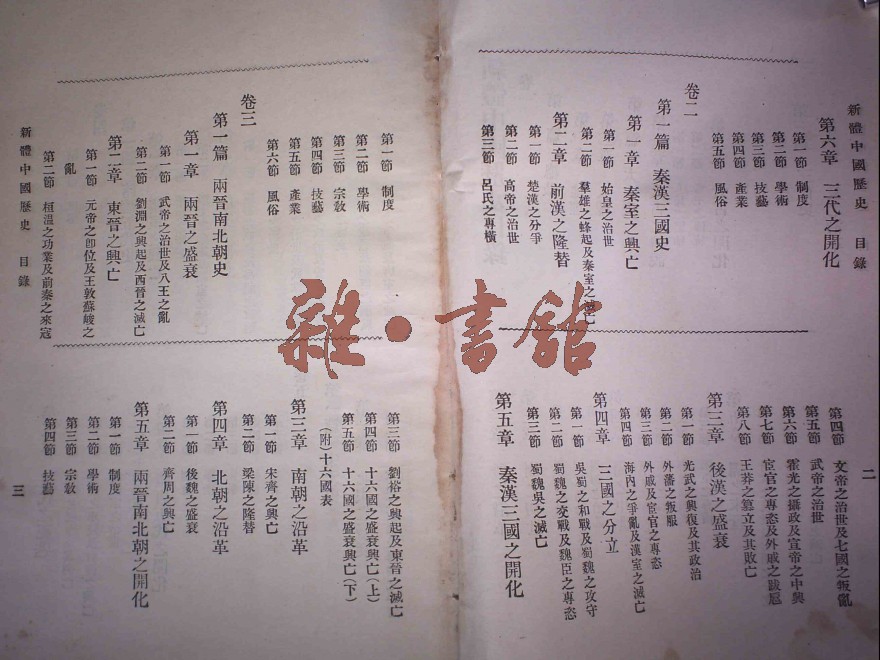 新體中國歷史 目錄
二
第六章 三代之開化
第一節 制度
第二節 學術
第三節 技藝
第四節 產業
第五節 風俗
卷二
第一篇 秦漢三國史
第一章 秦室之興亡
第一節 始皇之治世
第二節 羣雄之蜂起及秦室之滅亡
第二章 前漢之隆替
第一節 楚漢之分爭
第二節 高帝之治世
第三節 呂氏之專橫
第四節 文帝之治世及七國之叛亂
第五節 武帝之治世
第六節 霍光之攝政及宣帝之中興
第七節 宦官之專恣及外戚之跋扈
第八節 王莽之篡立及其敗亡
第三章 後漢之盛衰
第一節 光武之興復及其政治
第二節 外藩之叛服
第三節 外戚及宦官之專恣
第四節 海內之爭亂及漢室之滅亡
第四章 三國之分立
第一節 吳蜀之和戰及蜀魏之攻守
第二節 蜀魏之交戰及魏臣之專恣
第三節 蜀魏吳之滅亡
第五章 秦漢三國之開化
第一節 制度
第二節 學術
第三節 宗教
第四節 技藝
第五節 產業
第六節 風俗
卷三
第一篇 兩晉南北朝史
第一章 兩晉之盛衰
第一節 武帝之治世及八王之亂
第二節 劉淵之興起及西晉之滅亡
第二章 東晉之興亡
第一節 元帝之卽位及王敦蘇峻之
亂
第二節 桓溫之功業及前秦之來寇
第三節 劉裕之興起及東晉之滅亡
第四節 十六國之盛衰興亡(上)
第五節 十六國之盛衰興亡(下)
(附)十六國表
第三章 南朝之沿革
第一節 宋齊之興亡
第二節 梁陳之隆替
第四章 北朝之沿革
第一節 後魏之盛衰
第二節 齊周之興亡
第五章 兩晉南北朝之開化
第一節 制度
第二節 學術
第三節 宗教
第四節 技藝
新體中國歷史 目錄
三
雜·書館